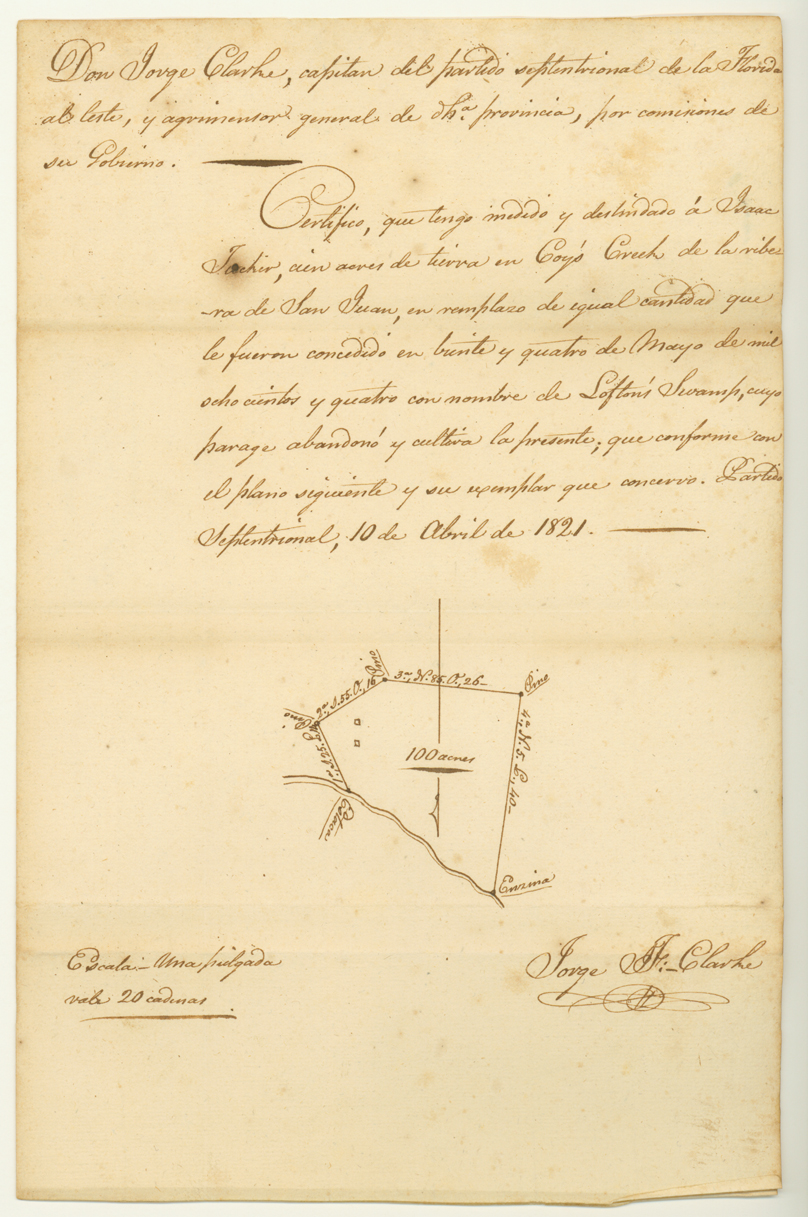 Don Jorge Clarke, capitan del partido septentrional de la Florida
al leste, y agrimensor general de dhª. provincia, por comisiones de
su Gobierno.
Certifico, que tengo medido y deslindado á Isaac
Tucker, cien acres de tierra en Coy's Creek de la ribe
-ra de San Juan, en remplazo de igual cantidad que
le fueron concedido en beinte y quatro de Mayo de mil
ocho cientos y quatro con nombre de Lofton's Swamp, cuyo
parage abandonó y cultiva la presente; que conforme con
el plano siguiente y su exemplar que concervo. Partido
Septentrional, 10 de Abril de 1821.
Pino
3ª, N. 85. O., 26-
Pino
2ª, S. 55. O., 16
Pino
4ª, N. 5. E., 40-
100 acres
Estaca
Enzina
Escala - Una pulgada
vale 20 cadenas
Jorge J. F. - Clarke